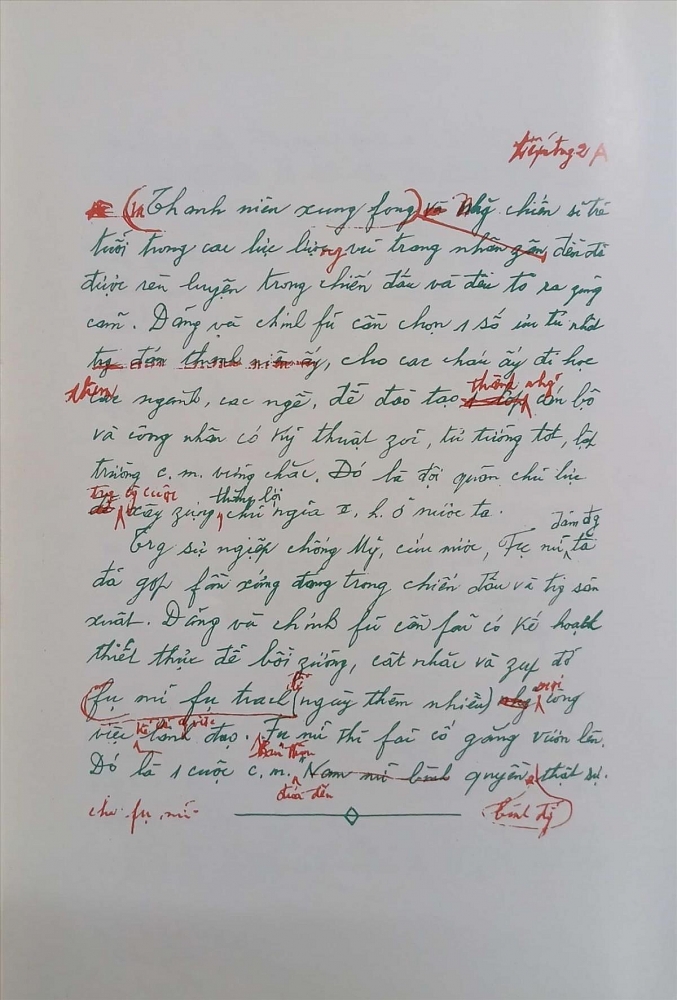 tiếp trg 2 A
(và Thanh niên xung fong) và Nhg chiến sĩ trẻ
tuổi trong các lực lượng vũ trang nhân zân đều đã
được rèn luyện trong chiến đấu và đều tỏ ra zũng
cảm. Đảng và chính fủ cần chọn 1 số ưu tú nhất
trg đám thanh niên ấy, cho các cháu ấy đi học
thêm các ngành, các ngề, để đào tạo thành nhg cán bộ
và công nhân có kỹ thuật zỏi, tư tưởng tốt, lập
trường c.m. vững chắc. Đó là đội quân chủ lực
trg cuộc xây zựng thắng lợi chủ ngĩa x. h. ở nước ta.
Trg sự ngiệp chống Mỹ, cứu nước, Fụ nữ đảm đg ta
đã góp fần xứng đáng trong chiến đấu và trg sản
xuất. Đảng và chính fủ cần fải có kế hoạch
thiết thực để bồi zưỡng, cất nhắc và zúp đỡ
fụ nữ fụ trách (ngày thêm nhiều) nhg mọi công
việc kể cả việc lãnh đạo. Fụ nữ thì fải cố gắng vươn lên.
bản thân
Đó là 1 cuộc c.m. Nam nữ bình quyền thật sự.
đưa đến
cho fụ nữ
bình đg